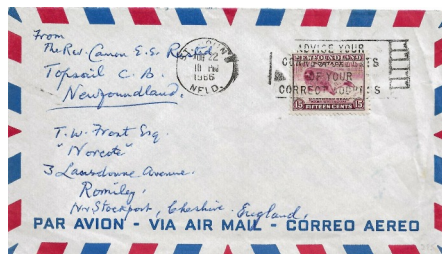 From
The Rev. Canon E.S.
Topsail C.B.
Newfoundland.
ST. JOHN'S
22
PM
1966
NFLD.
ADVISE YOUR
CORRESPONDENTS
OF YOUR
CORRECT ADDRESS
NEWFOUNDLAND
15 FIFTEEN CENTS 15
T.W. Frost Esq
"Norcote"
3 Lansdowne Avenue.
Romiley,
Nr. Stockport, Cheshire England.
PAR AVION - VIA AIR MAIL - CORREO AEREO